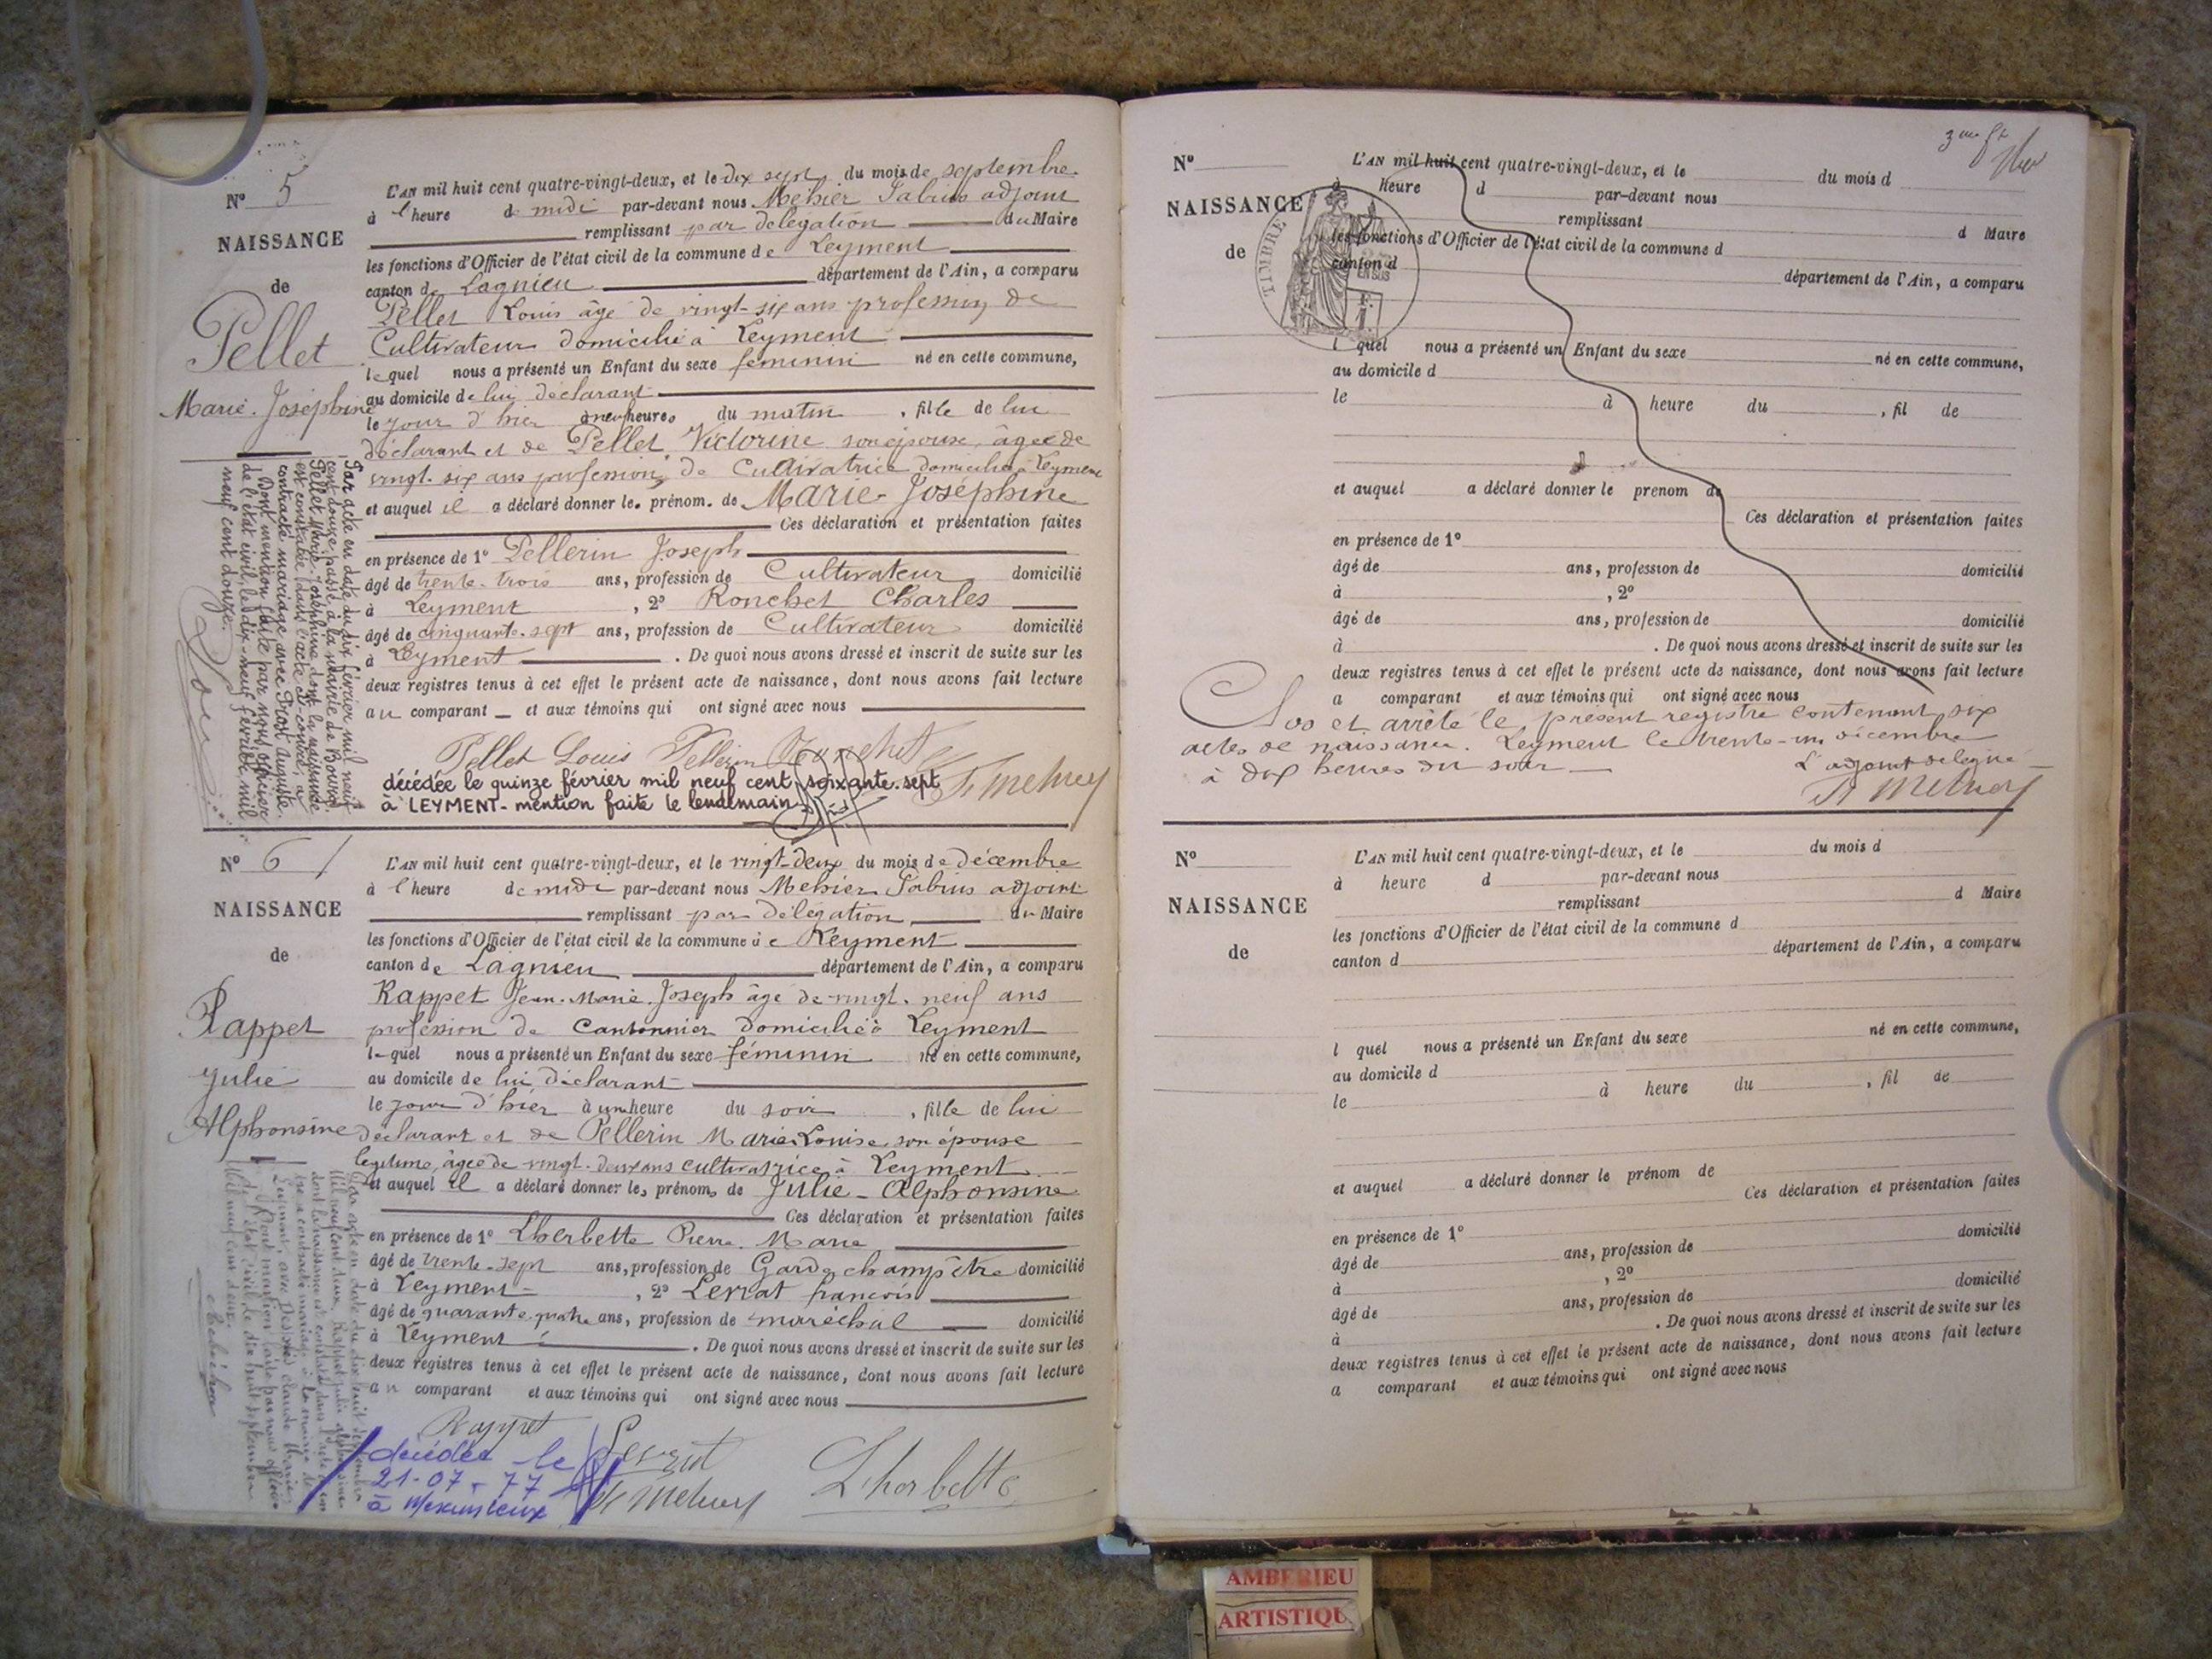 N° 5
NAISSANCE
de
Pellet
Marie-Joséphine
L'AN mil huit cent quatre-vingt-deux, et le dix sept du mois de septembre
à l'heure de midi par-devant nous Mehier Fabius adjoint
remplissant par délégation du Maire
les fonctions d'Officier de l'état civil de la commune de Leyment
canton de Lagnieu département de l'Ain, a comparu
Pellet Louis âgé de vingt-six ans profession de
Cultivateur domicilié à Leyment
lequel nous a présenté un Enfant du sexe féminin né en cette commune,
au domicile de lui déclarant
le jour d'hier à neuf heures du matin, fille de lui
déclarant et de Pellet Victorine son épouse, âgée de
vingt-six ans profession de Cultivatrice domiciliée à Leyment
et auquel il a déclaré donner le prénom de Marie-Joséphine
Ces déclaration et présentation faites
en présence de 1° Pellerin Joseph
âgé de trente-trois ans, profession de Cultivateur domicilié
à Leyment, 2° Ronchet Charles
âgé de cinquante-sept ans, profession de Cultivateur domicilié
à Leyment. De quoi nous avons dressé et inscrit de suite sur les
deux registres tenus à cet effet le présent acte de naissance, dont nous avons fait lecture
au comparant et aux témoins qui ont signé avec nous
Pellet Louis Pellerin Ronchet
F. Mehier
décédée le quinze février mil neuf cent soixante-sept
à LEYMENT - mention faite le lendemain
Par acte en date du dix février mil neuf
cent douze, passé à la mairie de
Pellet Marie-Joséphine dont la naissance
est constatée dans l'acte ci-contre, a
contracté mariage avec Auguste.
Dont mention faite par nous, officier
de l'état civil, le dix-neuf février mil
neuf cent douze.
N° 6
NAISSANCE
de
Rappet
Julie
Alphonsine
L'AN mil huit cent quatre-vingt-deux, et le vingt-deux du mois de décembre
à l'heure de midi par-devant nous Mehier Fabius adjoint
remplissant par délégation du Maire
les fonctions d'Officier de l'état civil de la commune de Leyment
canton de Lagnieu département de l'Ain, a comparu
Rappet Jean-Marie-Joseph âgé de vingt-neuf ans
profession de Cantonnier domicilié à Leyment
lequel nous a présenté un Enfant du sexe féminin né en cette commune,
au domicile de lui déclarant
le jour d'hier à une heure du soir, fille de lui
déclarant et de Pellerin Marie Louise, son épouse
légitime, âgée de vingt-deux ans cultivatrice à Leyment
et auquel il a déclaré donner les prénoms de Julie-Alphonsine
Ces déclaration et présentation faites
en présence de 1° Lherbette Pierre Marie
âgé de trente-sept ans, profession de Garde champêtre domicilié
à Leyment, 2° Levrat françois
âgé de quarante-quatre ans, profession de maréchal domicilié
à Leyment. De quoi nous avons dressé et inscrit de suite sur les
deux registres tenus à cet effet le présent acte de naissance, dont nous avons fait lecture
au comparant et aux témoins qui ont signé avec nous
Rappet Levrat
F. Mehier Lherbette
décédée le
21-07-77
à Meximieux
3me
N°
NAISSANCE
de
TIMBRE
EN SUS
L'AN mil huit cent quatre-vingt-deux, et le du mois d
à heure d par-devant nous
remplissant d Maire
les fonctions d'Officier de l'état civil de la commune d
canton d département de l'Ain, a comparu
l quel nous a présenté un Enfant du sexe né en cette commune,
au domicile d
le à heure du , fil de
et auquel a déclaré donner le prenom de
Ces déclaration et présentation faites
en présence de 1°
âgé de ans, profession de domicilié
à , 2°
âgé de ans, profession de domicilié
à . De quoi nous avons dressé et inscrit de suite sur les
deux registres tenus à cet effet le présent acte de naissance, dont nous avons fait lecture
a comparant et aux témoins qui ont signé avec nous
Clos et arrêté le présent registre contenant six
actes de naissance. Leyment le trente-un décembre
à dix heures du soir
L'adjoint délégué
F. Mehier
N°
NAISSANCE
de
L'AN mil huit cent quatre-vingt-deux, et le du mois d
à heure d par-devant nous
remplissant d Maire
les fonctions d'Officier de l'état civil de la commune d
canton d département de l'Ain, a comparu
l quel nous a présenté un Enfant du sexe né en cette commune,
au domicile d
le à heure du , fil de
et auquel a déclaré donner le prénom de
Ces déclaration et présentation faites
en présence de 1° domicilié
âgé de ans, profession de
à , 2° domicilié
âgé de ans, profession de
à . De quoi nous avons dressé et inscrit de suite sur les
deux registres tenus à cet effet le présent acte de naissance, dont nous avons fait lecture
a comparant et aux témoins qui ont signé avec nous
AMBERIEU
ARTISTIQU